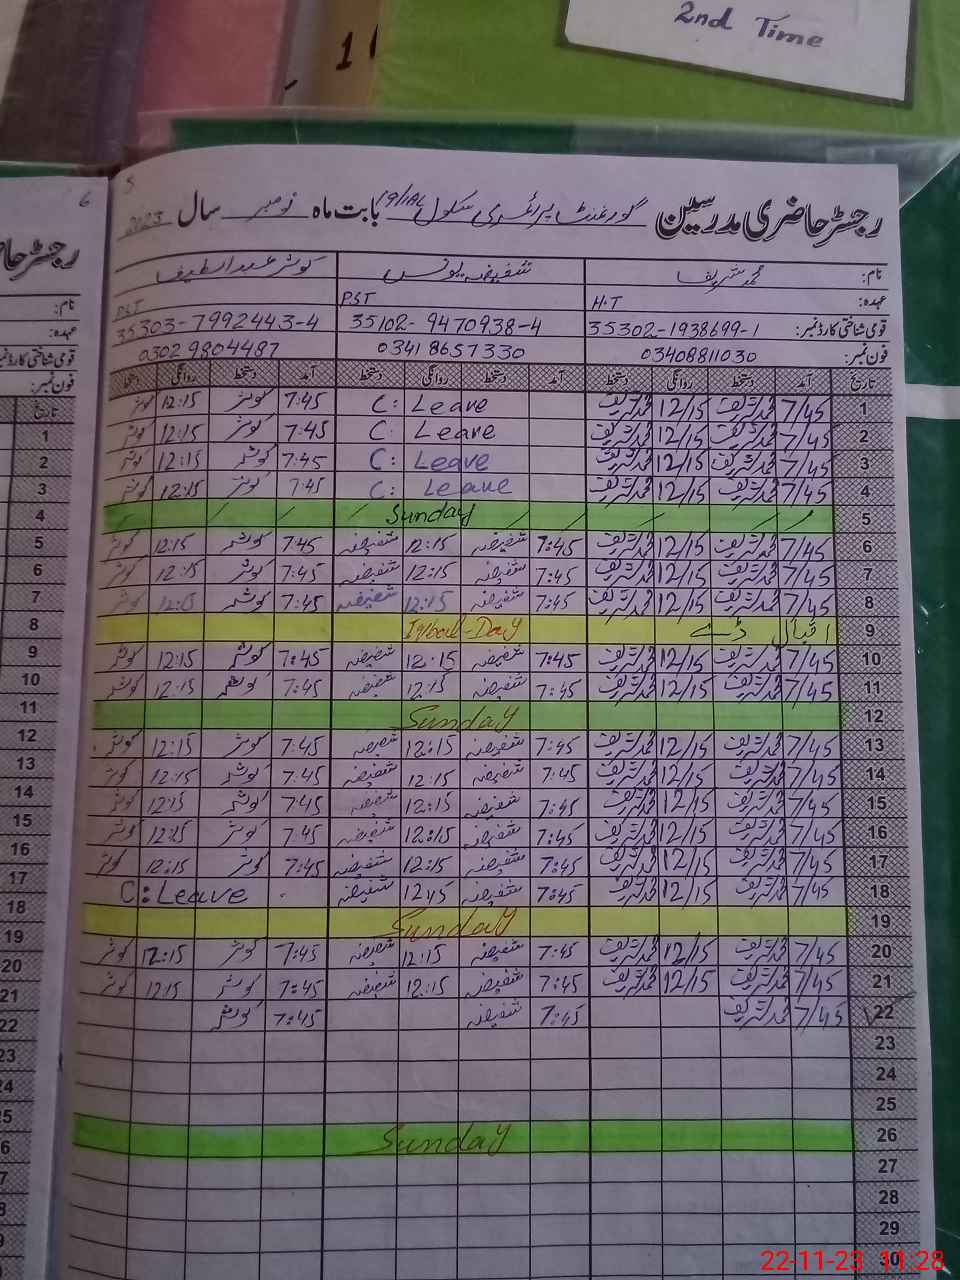 2nd Time
5
6
رجسٹر حاضری مدرسین گورنمنٹ پرائمری سکول 19/1AL بابت ماہ نومبر سال 2023
نام: محمد شریف شفیضہ یونس کوثر عبدالطیف
عہدہ: H.T PST PST
قومی شناختی کارڈ نمبر: 35302-1938699-1 35102-9470938-4 35303-7992443-4
فون نمبر: 03408811030 03418657330 03029804487
تاریخ آمد دستخط روانگی دستخط آمد دستخط روانگی دستخط آمد دستخط روانگی دستخط
1 7/45 محمد شریف 12/15 محمد شریف C: Leave 7:45 کوثر 12:15 کوثر
2 7/45 محمد شریف 12/15 محمد شریف C: Leave 7:45 کوثر 12:15 کوثر
3 7/45 محمد شریف 12/15 محمد شریف C: Leave 7:45 کوثر 12:15 کوثر
4 7/45 محمد شریف 12/15 محمد شریف C: Leave 7:45 کوثر 12:15 کوثر
5 Sunday
6 7/45 محمد شریف 12/15 محمد شریف 7:45 شفیضہ 12:15 شفیضہ 7:45 کوثر 12:15 کوثر
7 7/45 محمد شریف 12/15 محمد شریف 7:45 شفیضہ 12:15 شفیضہ 7:45 کوثر 12:15 کوثر
8 7/45 محمد شریف 12/15 محمد شریف 7:45 شفیضہ 12:15 شفیضہ 7:45 کوثر 12:15 کوثر
9 اقبال ڈے Iqbal-Day
10 7/45 محمد شریف 12/15 محمد شریف 7:45 شفیضہ 12:15 شفیضہ 7:45 کوثر 12:15 کوثر
11 7/45 محمد شریف 12/15 محمد شریف 7:45 شفیضہ 12:15 شفیضہ 7:45 کوثر 12:15 کوثر
12 Sunday
13 7/45 محمد شریف 12/15 محمد شریف 7:45 شفیضہ 12:15 شفیضہ 7:45 کوثر 12:15 کوثر
14 7/45 محمد شریف 12/15 محمد شریف 7:45 شفیضہ 12:15 شفیضہ 7:45 کوثر 12:15 کوثر
15 7/45 محمد شریف 12/15 محمد شریف 7:45 شفیضہ 12:15 شفیضہ 7:45 کوثر 12:15 کوثر
16 7/45 محمد شریف 12/15 محمد شریف 7:45 شفیضہ 12:15 شفیضہ 7:45 کوثر 12:15 کوثر
17 7/45 محمد شریف 12/15 محمد شریف 7:45 شفیضہ 12:15 شفیضہ 7:45 کوثر 12:15 کوثر
18 7/45 محمد شریف 12/15 محمد شریف 7:45 شفیضہ 1245 شفیضہ C: Leave
19 Sunday
20 7/45 محمد شریف 12/15 محمد شریف 7:45 شفیضہ 12:15 شفیضہ 7:45 کوثر 12:15 کوثر
21 7/45 محمد شریف 12/15 محمد شریف 7:45 شفیضہ 12:15 شفیضہ 7:45 کوثر 12:15 کوثر
22 7/45 محمد شریف 7:45 شفیضہ 7:45 کوثر
23
24
25
26 Sunday
27
28
29
30
رجسٹر حا
نام:
عہدہ:
قومی شناختی کارڈ نمبر
فون نمبر:
تاریخ
1
2
3
4
5
6
7
8
9
10
11
12
13
14
15
16
17
18
19
20
21
22
23
22-11-23 11:28